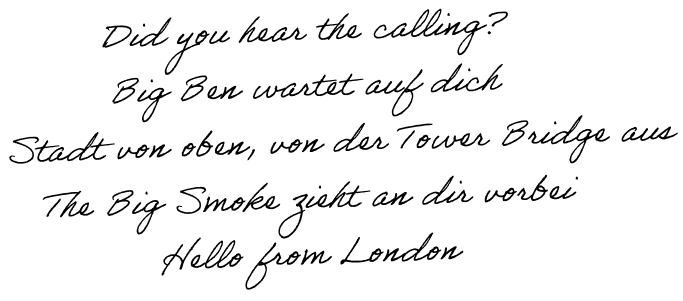 Did you hear the calling?
Big Ben wartet auf dich
Stadt von oben, von der Tower Bridge aus
The Big Smoke zieht an dir vorbei
Hello from London